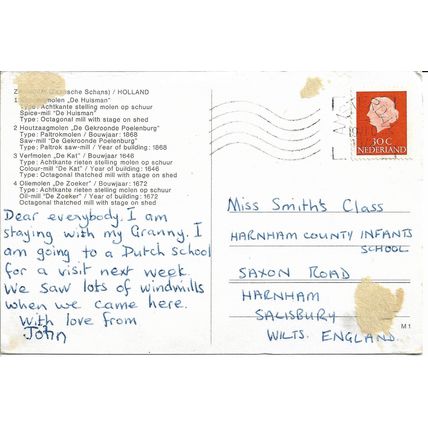 (Zaanse Schans) / HOLLAND
1 molen „De Huisman"
Type: Achtkante stelling molen op schuur
Spice-mill "De Huisman"
Type: Octagonal mill with stage on shed
2 Houtzaagmolen „De Gekroonde Poelenburg"
Type: Paltrokmolen / Bouwjaar: 1868
Saw-mill "De Gekroonde Poelenburg"
Type: Paltrok saw-mill / Year of building: 1868
3 Verfmolen „De Kat" / Bouwjaar 1646
Type: Achtkante stelling molen op schuur
Colour-mill "De Kat" / Year of building: 1646
Type: Octagonal mill with stage on shed
4 Oliemolen „De Zoeker" / Bouwjaar: 1672
Type: Achtkante rieten stelling molen op schuur
Oil-mill "De Zoeker" / Year of building: 1672
Octagonal thatched mill with stage on shed
Dear everybody. I am
staying with my Granny. I
am going to a Dutch school
for a visit next week.
We saw lots of windmills
when we came here.
With love from
John
30 C
NEDERLAND
Miss Smith's Class
HARNHAM COUNTY INFANTS
SCHOOL
SAXON ROAD
HARNHAM
SALISBURY
WILTS. ENGLAND
M 1